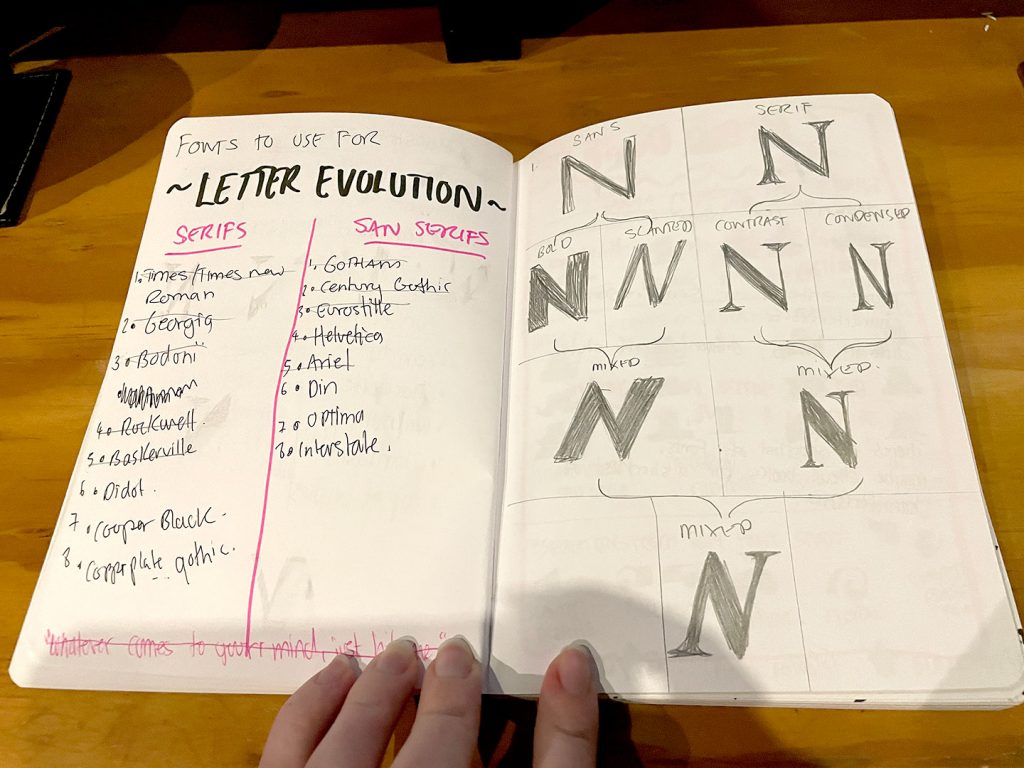 FONTS TO USE FOR
~LETTER EVOLUTION~
SERIFS
1. Times/Times new
Roman
2. Georgia
3. Bodoni
4. Rockwell.
5. Baskerville
6. Didot.
7. Cooper Black.
8. copperplate gothic.
SAN SERIFS
1. GOTHAM
2. Century Gothic
3. Eurostille
4. Helvetica
5. Ariel
6. Din
7. Optima
8. Interstate.
"whatever comes to your mind, just
1.
SANS
SERIF
N
N
BOLD
SLANTED
CONTRAST
CONDENSED
N
N
N
N
MIXED
MIXED.
N
N
MIXED
N